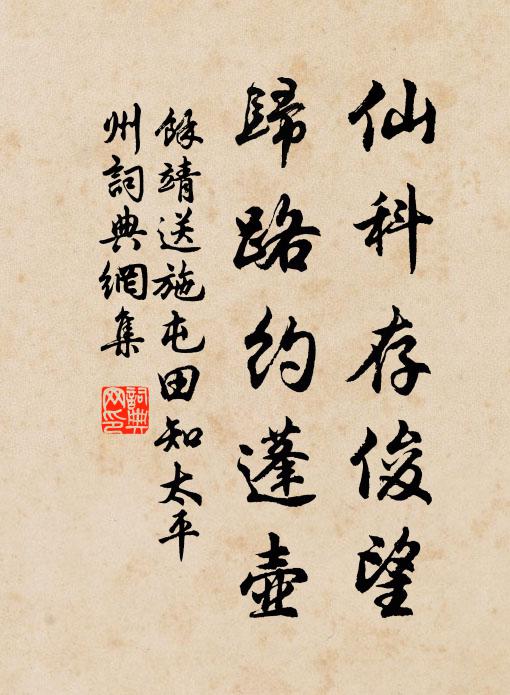 仙科存俊望
歸路約蓬壺
餘靖送施屯田知太平
州詞典網集
詞典
网印